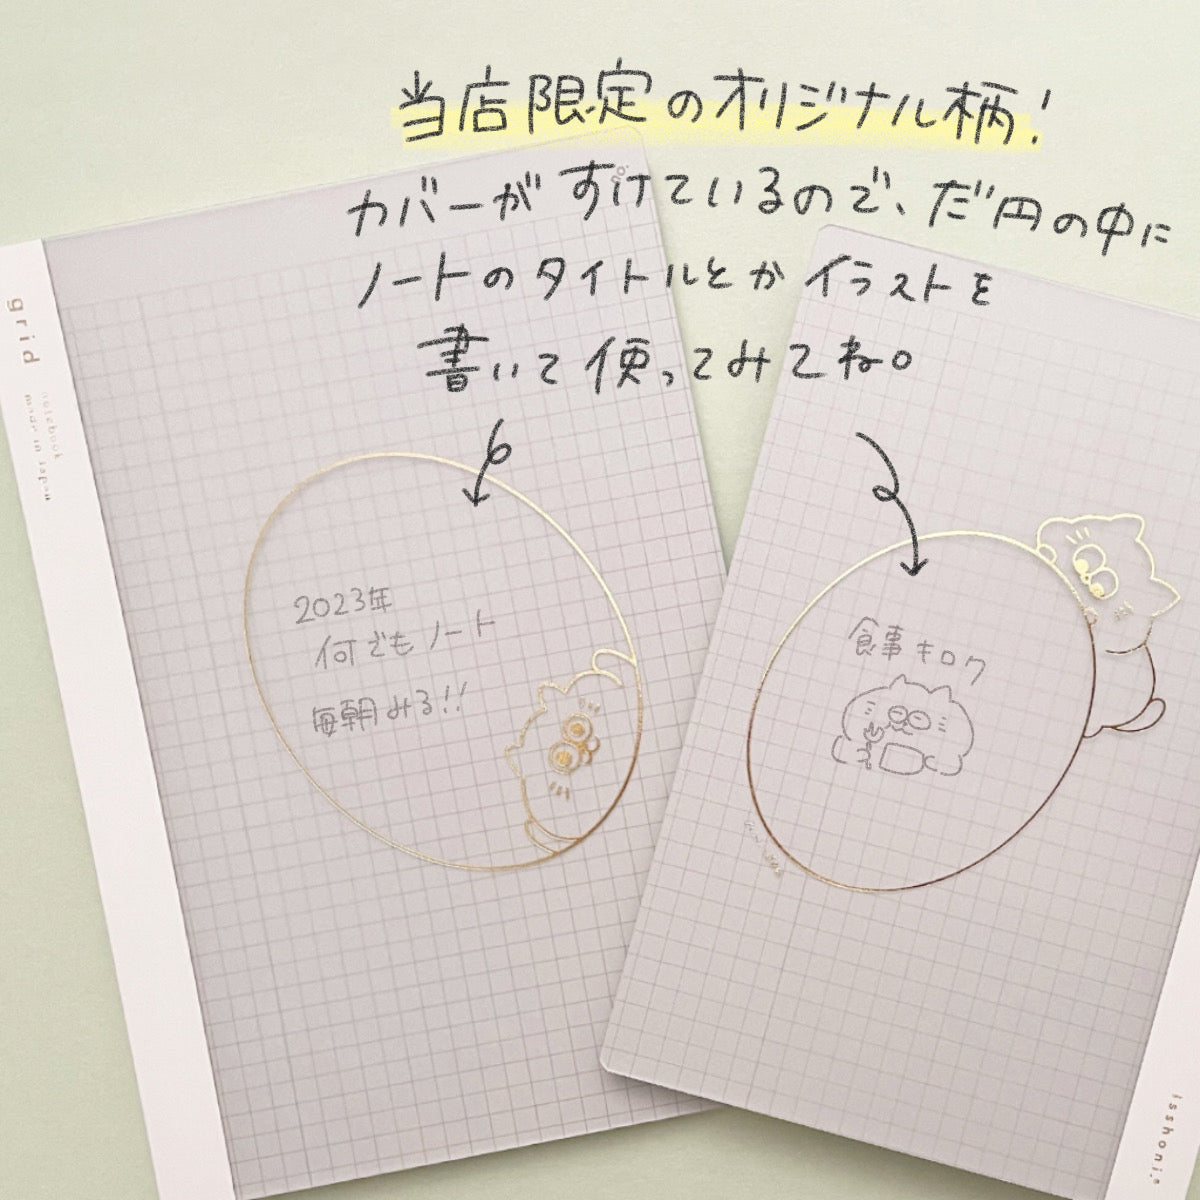 当店限定のオリジナル柄!
カバーがすけているので、だ円の中に
ノートのタイトルとかイラストを
書いて使ってみてね。
no.
grid
notebook
made in Japan
2023年
何でもノート
毎朝みる!!
食事キロク
isshoni.®